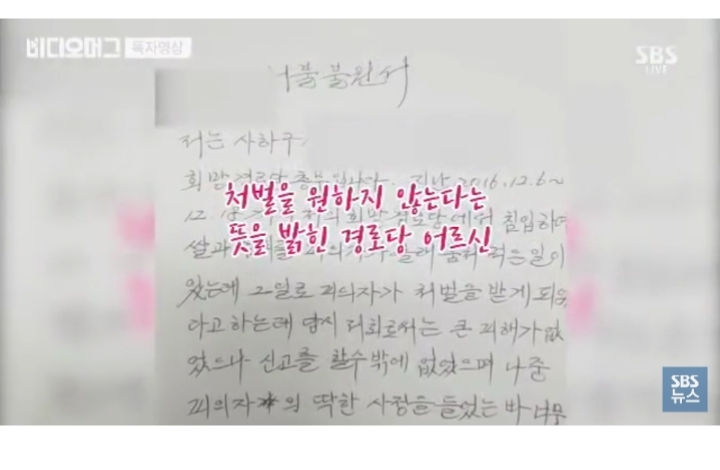 비디오머그 독자영상
SBS
LIVE
처불불원서
저는 사하구
희망경로당 총무입니다. 지난 2016.12.6~
처벌을 원하지 않는다는
12.18
희망경로당에서 침입하여
뜻을 밝힌 경로당 어르신
쌀과
은일이
있는데 그일로 피의자가 처벌을 받게 되었
다고 하는데 당시 저희로서는 큰 피해가 없
었으나 신고를 할수밖에 없었으며 나중
피의자의 딱한 사정을 들었는 바 너무
SBS
뉴스